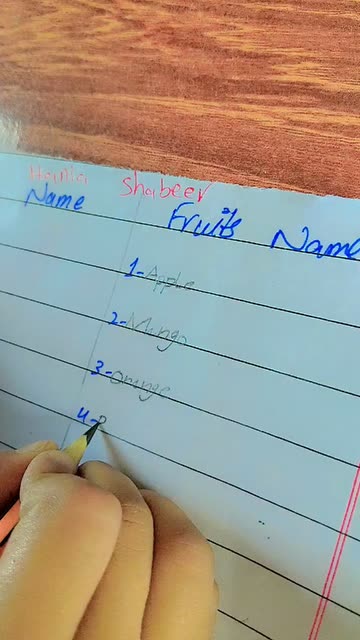 Hamna Shabeer
Name Fruits Name
1- Apple
2- Mango
3- Orange
4- P